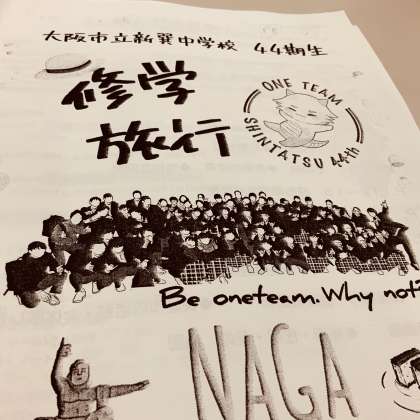 大阪市立新巽中学校 44期生
修学
旅行
ONE TEAM
SHINTATSU 44th
Be oneteam. Why not?
NAGA